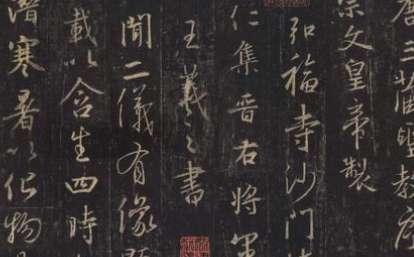 三藏聖教序
宗文皇帝製
弘福寺沙門
仁集晉右將軍
王羲之書
聞二儀有像顯
載以含生四時
潛寒暑以化物